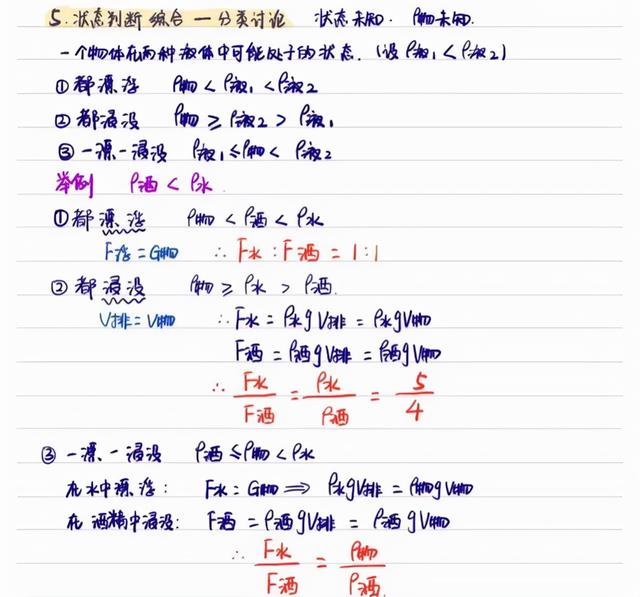 5. 状态判断综合 — 分类讨论 状态未知. ρ物未知.
一个物体在两种液体中可能处于的状态. (设ρ液₁ < ρ液₂)
① 都漂浮 ρ物 < ρ液₁ < ρ液₂
② 都浸没 ρ物 ≥ ρ液₂ > ρ液₁
③ 一漂一浸没 ρ液₁ ≤ ρ物 < ρ液₂
举例 ρ酒 < ρ水.
① 都漂浮 ρ物 < ρ酒 < ρ水
F浮 = G物 ∴ F水 : F酒 = 1 : 1
② 都浸没 ρ物 ≥ ρ水 > ρ酒.
V排 = V物 ∴ F水 = ρ水gV排 = ρ水gV物
F酒 = ρ酒gV排 = ρ酒gV物
∴ F水/F酒 = ρ水/ρ酒 = 5/4
③ 一漂一浸没 ρ酒 ≤ ρ物 < ρ水
在水中漂浮: F水 = G物 ⟹ ρ水gV排 = ρ物gV物
在酒精中浸没: F酒 = ρ酒gV排 = ρ酒gV物
∴ F水/F酒 = ρ物/ρ酒.